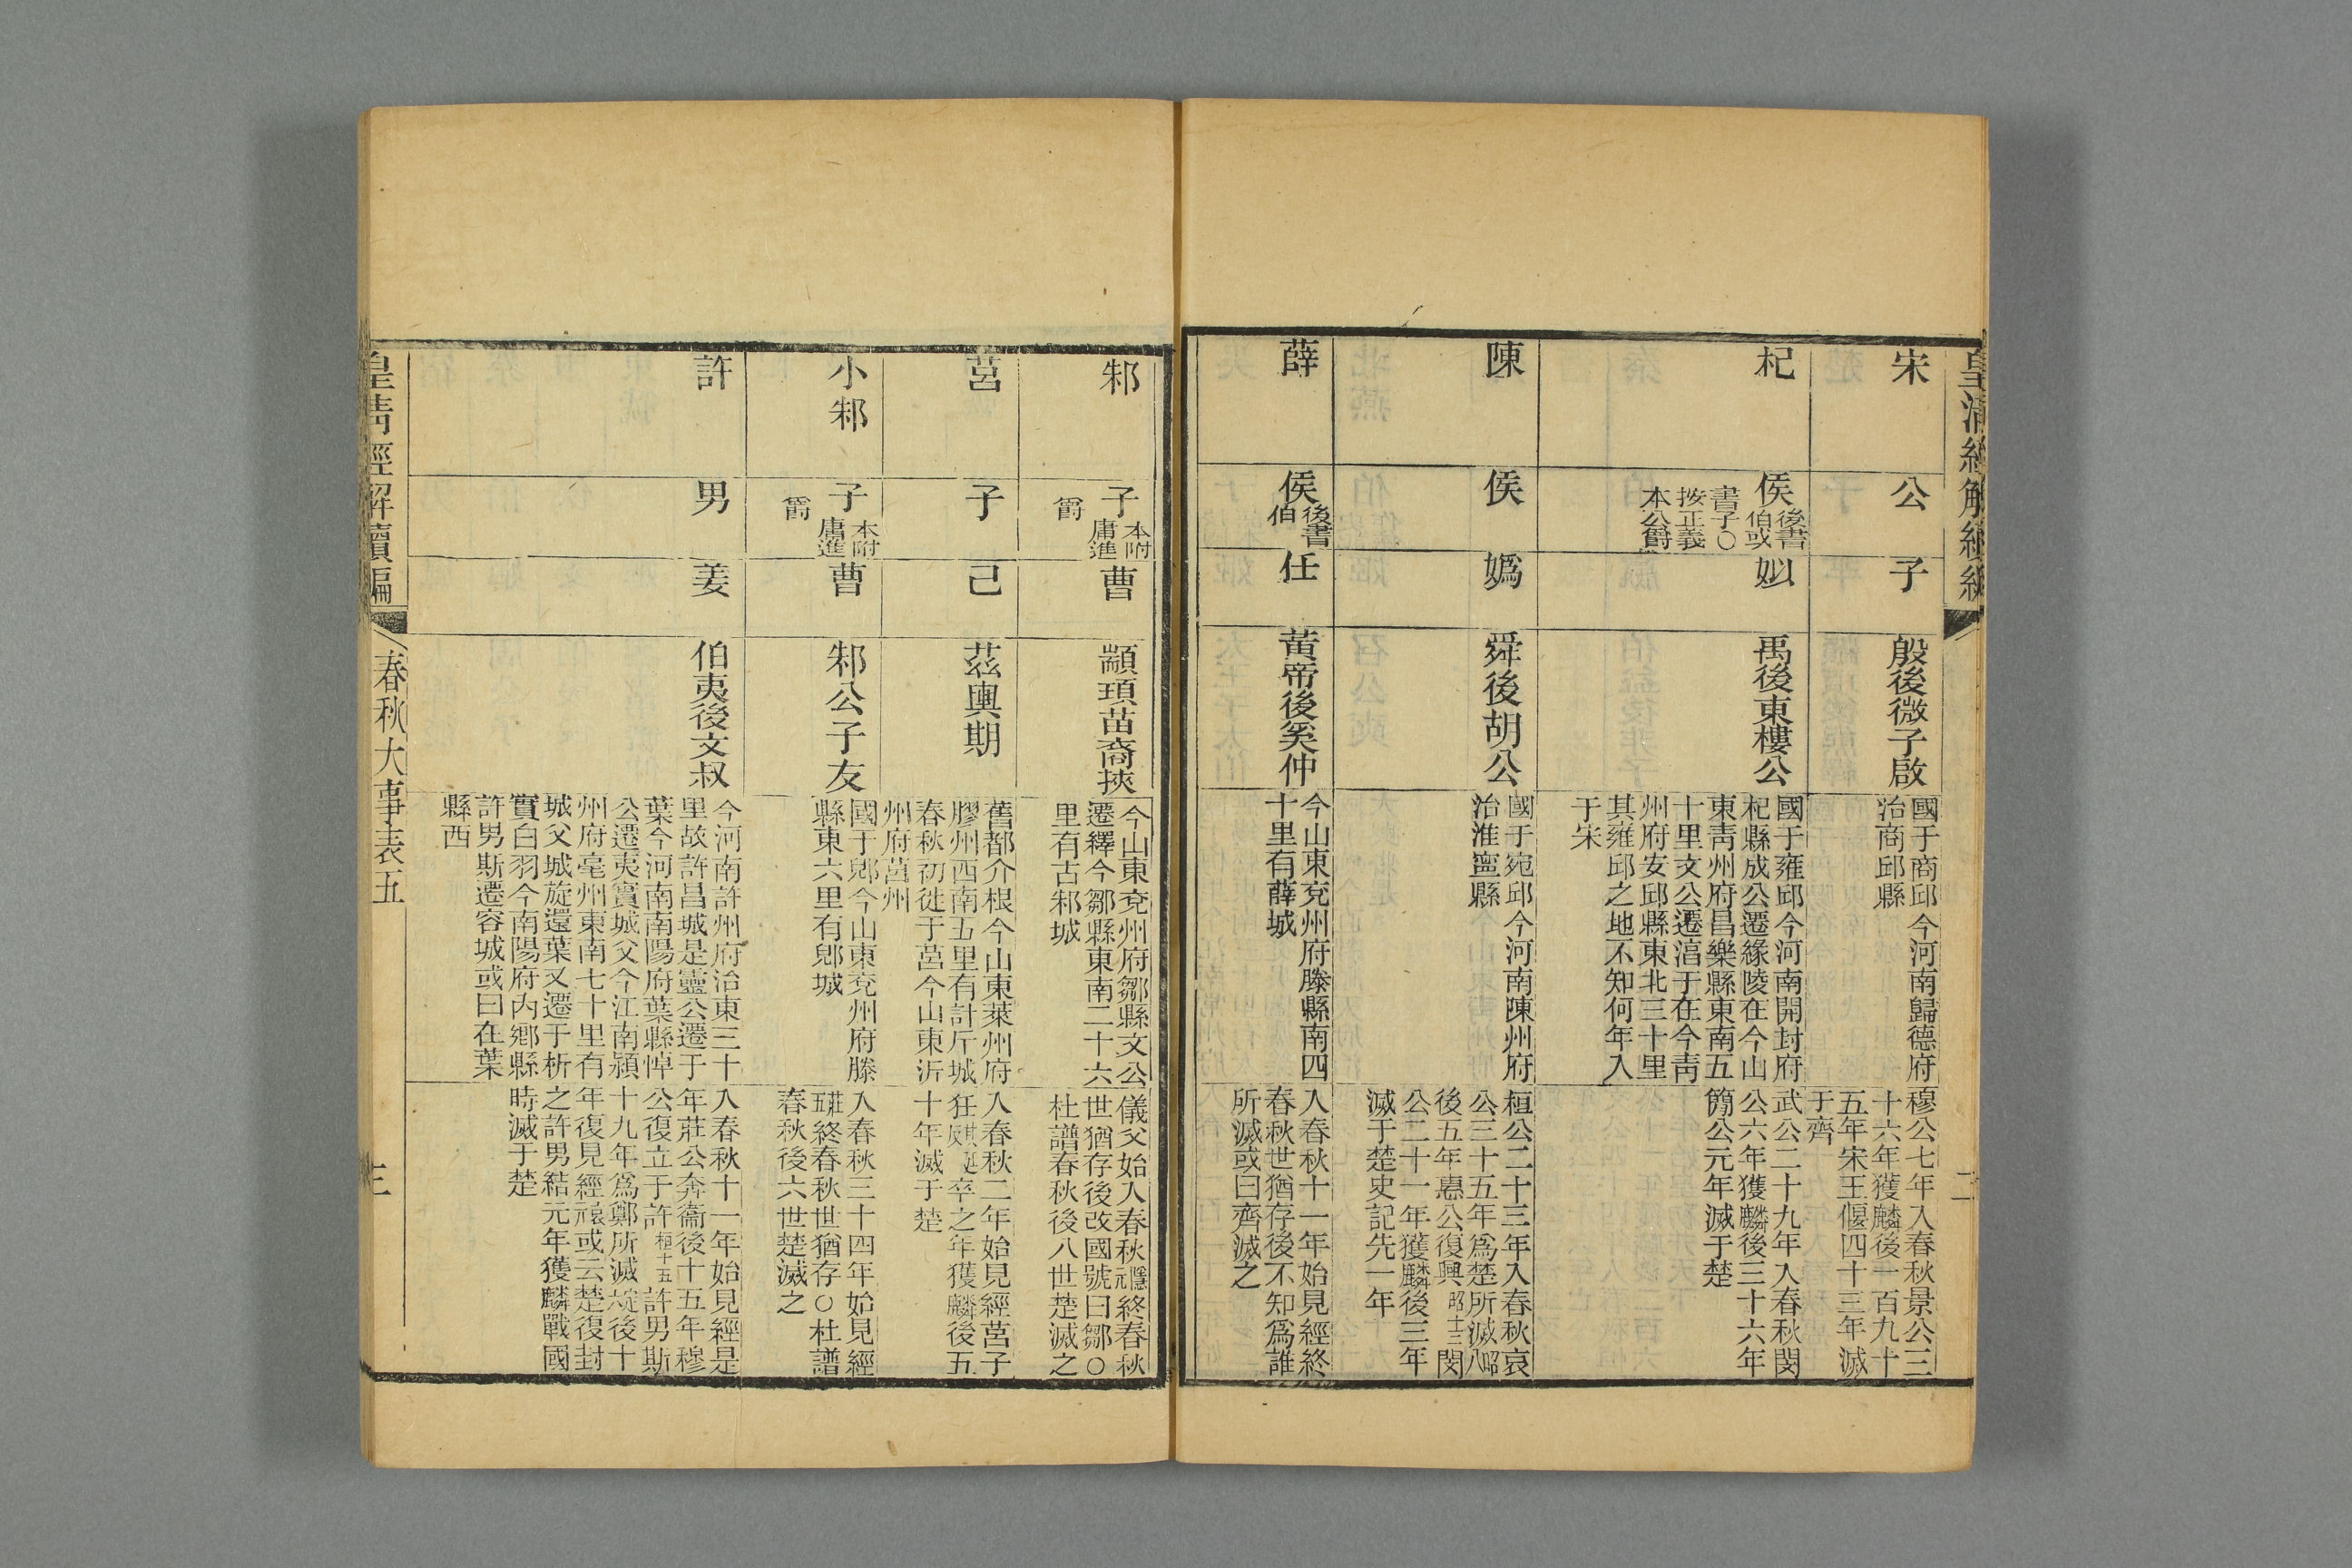 宋
公
子
殷後微子啟
國于商邱今河南歸德府
治商邱縣
穆公七年入春秋景公三
十六年獲麟後一百九十
五年宋王偃四十三年滅
于齊
杞
侯
後書
伯或
書子○
按正義
本公爵
姒
禹後東樓公
國于雍邱今河南開封府
杞縣成公遷緣陵在今山
東靑州府昌樂縣東南五
十里文公遷淳于在今靑
州府安邱縣東北三十里
其雍邱之地不知何年入
于宋
武公二十九年入春秋閔
公六年獲麟後三十六年
簡公元年滅于楚
陳
侯
媯
舜後胡公
國于宛邱今河南陳州府
治淮寧縣
桓公二十三年入春秋哀
公三十五年爲楚所滅昭八
後五年惠公復興昭十三閔
公二十一年獲麟後三年
滅于楚史記先一年
薛
侯
後書
伯
任
黃帝後奚仲
今山東兗州府滕縣南四
十里有薛城
入春秋十一年始見經終
春秋世猶存後不知爲誰
所滅或曰齊滅之
邾
子
本附
庸進
爵
曹
顓頊苗裔挾
今山東兗州府鄒縣文公
遷繹今鄒縣東南二十六
里有古邾城
儀父始入春秋隱元終春秋
世猶存後改國號曰鄒○
杜譜春秋後八世楚滅之
莒
子
己
茲輿期
舊都介根今山東萊州府
膠州西南五里有計斤城
春秋初徙于莒今山東沂
州府莒州
入春秋二年始見經莒子
狂卒之年獲麟後五
十年滅于楚
小邾
子
本附
庸進
爵
曹
邾公子友
國于郳今山東兗州府滕
縣東六里有郳城
入春秋三十四年始見經
莊五終春秋世猶存○杜譜
春秋後六世楚滅之
許
男
姜
伯夷後文叔
今河南許州府治東三十
里故許昌城是靈公遷于
葉今河南南陽府葉縣悼
公遷夷實城父今江南潁
州府亳州東南七十里有
城父城旋還葉又遷于析
實白羽今南陽府內鄉縣
許男斯遷容城或曰在葉
縣西
入春秋十一年始見經是
年莊公奔衞後十五年穆
公復立于許桓十五許男斯
十九年爲鄭所滅定六後十
年復見經哀元或云楚復封
之許男結元年獲麟戰國
時滅于楚
皇淸經解續編
春秋大事表五
二
皇淸經解續編
春秋大事表五
三